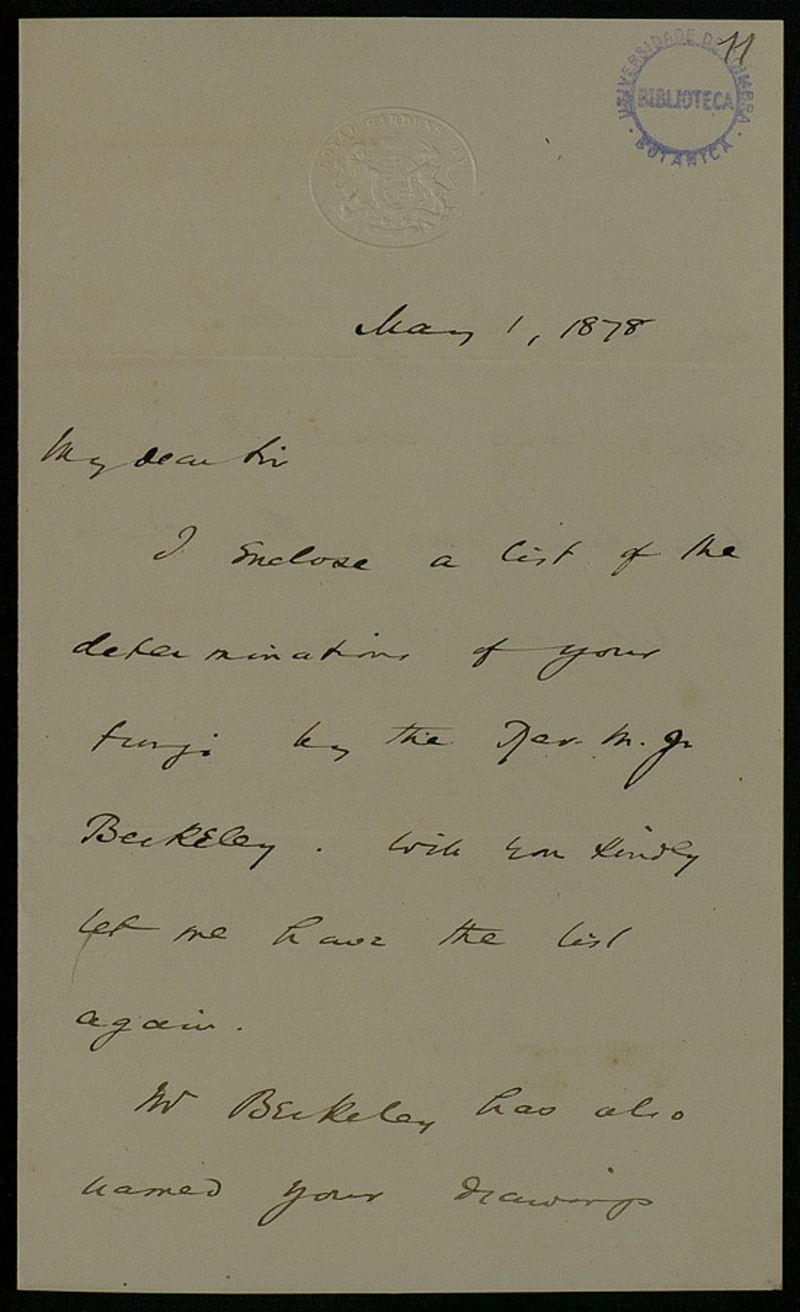 11
UNIVERSIDADE DE COIMBRA
BIBLIOTECA
BOTANICA
ROYAL GARDENS KEW
May 1, 1878
My dear Sir
I Enclose a list of the
determinations of your
fungi by the Rev. M. J.
Berkeley. Will you kindly
let me have the list
again.
Mr Berkeley has also
named your drawings